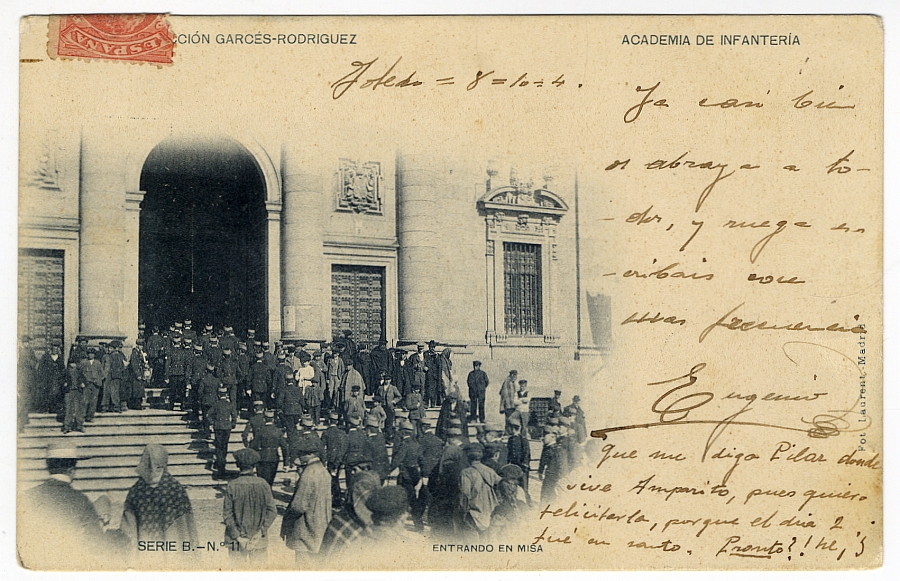 ESPAÑA
CIÓN GARCÉS-RODRIGUEZ
ACADEMIA DE INFANTERÍA
Toledo = 8 = 10 = 4.
Ya casi bien
os abraza a to-
-dos, y ruega es-
-cribais con
mas frecuencia
Eugenio
Fot Laurent-Madrid
que me diga Pilar donde
vive Amparito, pues quiero
felicitarla, porque el dia 2
fué su santo. Pronto?! he,
SERIE B.-N.º 11
ENTRANDO EN MISA